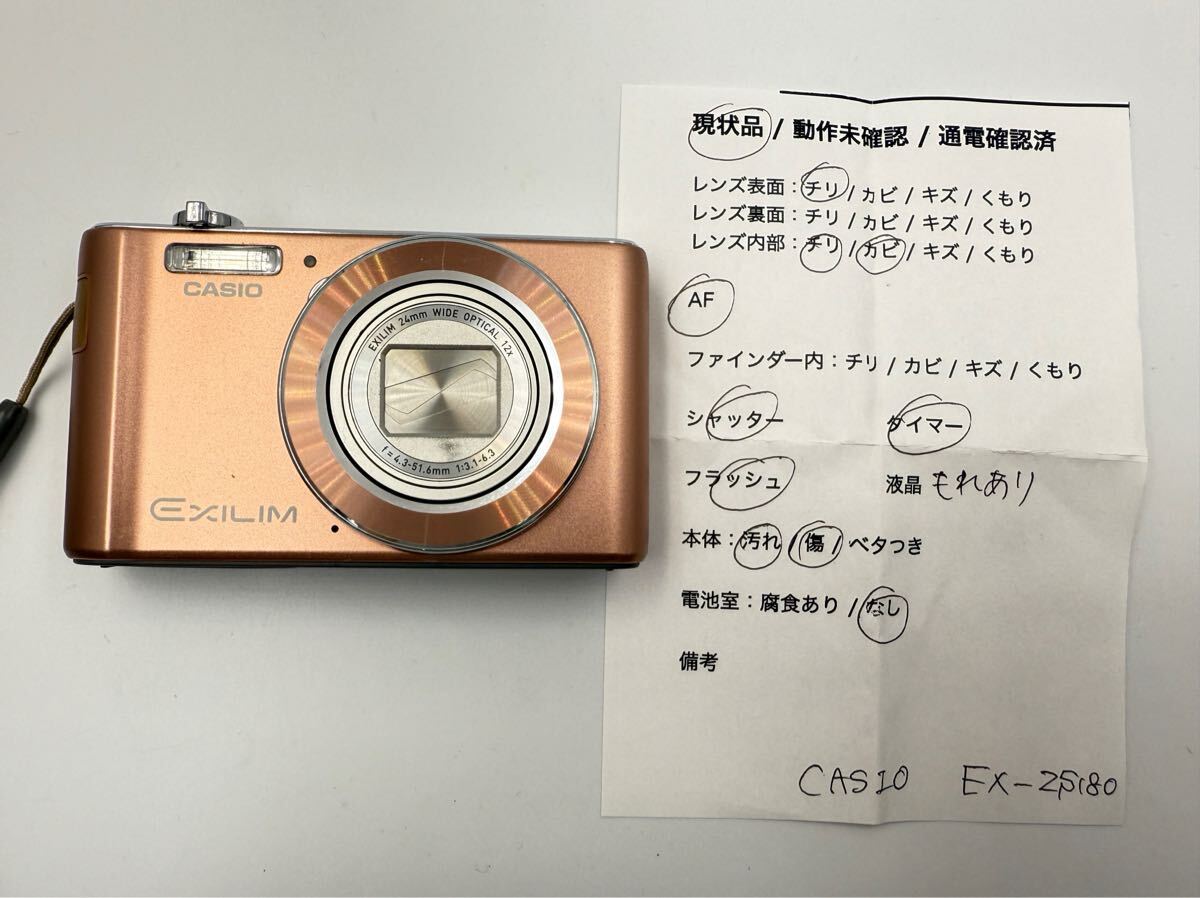 CASIO
EXILIM 24mm WIDE OPTICAL 12x
f=4.3-51.6mm 1:3.1-6.3
EXILIM
現状品 / 動作未確認 / 通電確認済
レンズ表面：チリ / カビ / キズ / くもり
レンズ裏面：チリ / カビ / キズ / くもり
レンズ内部：チリ / カビ / キズ / くもり
AF
ファインダー内：チリ / カビ / キズ / くもり
シャッター タイマー
フラッシュ 液晶 もれあり
本体：汚れ / 傷 / ベタつき
電池室：腐食あり / なし
備考
CASIO EX-ZS180